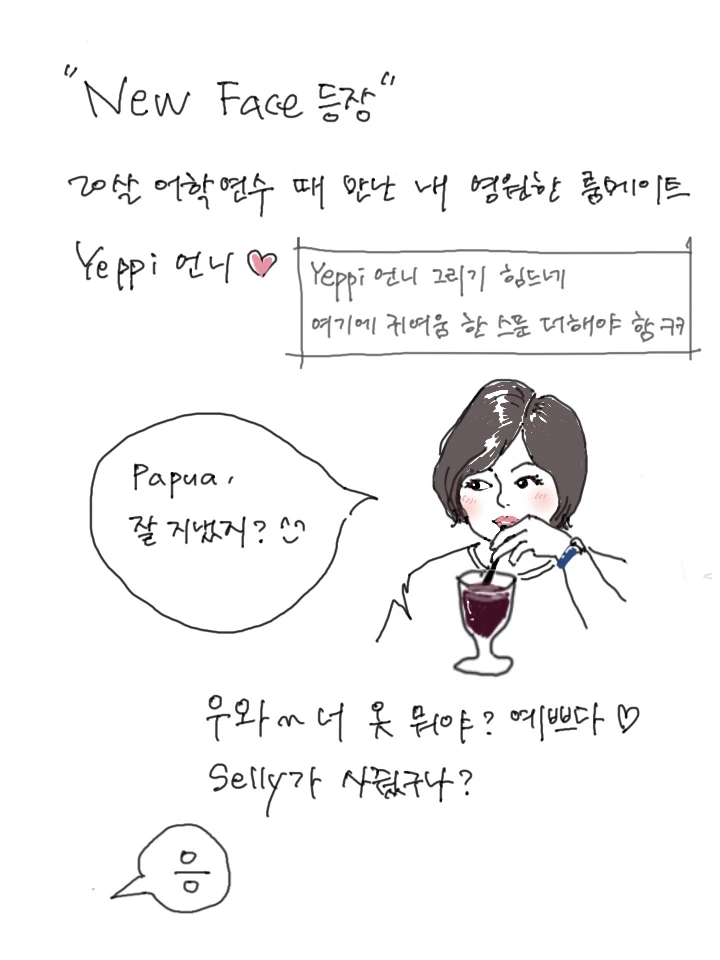 "New Face 등장"
20살 어학연수 때 만난 내 영원한 룸메이트
Yeppi 언니 ♥
Yeppi 언니 그리기 힘드네
여기에 귀여움 한 스푼 더해야 함 ㅋㅋ
Papua,
잘 지냈지? ^^
우와~ 너 옷 뭐야? 예쁘다 ♡
Selly가 사줬구나?
응